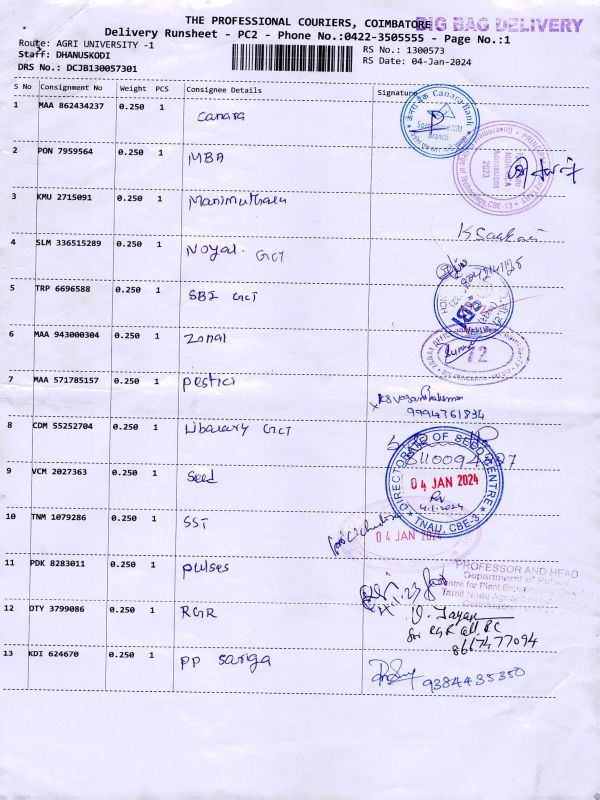 THE PROFESSIONAL COURIERS, COIMBATORE
BIG BAG DELIVERY
Delivery Runsheet - PC2 - Phone No.:0422-3505555 - Page No.:1
Route: AGRI UNIVERSITY -1
RS No.: 1300573
Staff: DHANUSKODI
RS Date: 04-Jan-2024
DRS No.: DCJB130057301
S No Consignment No Weight PCS Consignee Details Signature
1 MAA 862434237 0.250 1 Canara
Canara Bank
Branch
2 PON 7959564 0.250 1 MBA
3 KMU 2715091 0.250 1 Manimuthalu
4 SLM 336515289 0.250 1 Noyal. GCT
5 TRP 6696588 0.250 1 SBI GCT
6 MAA 943000304 0.250 1 Zonal
72
7 MAA 571785157 0.250 1 pestici
9994761834
8 CDM 55252704 0.250 1 Libarary GCT
DIRECTORATE OF SEED CENTRE
04 JAN 2024
4.1.2024
TNAU, CBE-3
9 VCM 2027363 0.250 1 Seed
10 TNM 1079286 0.250 1 SST
04 JAN 2024
11 PDK 8283011 0.250 1 pulses
PROFESSOR AND HEAD
Department of Pulses
Centre for Plant Breeding
Tamil Nadu Agri
12 DTY 3799086 0.250 1 RGR
8667477094
13 KDI 624670 0.250 1 PP Sariga
9384435350